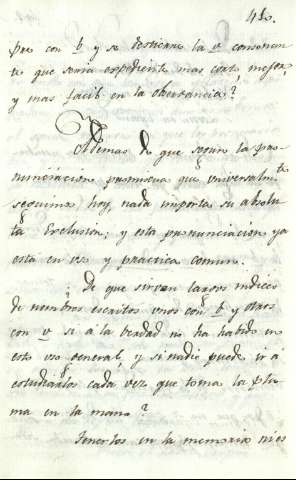 pre con b y se desterrara la v consonan
te que seria expediente mas cort, mejor,
y mas facil en la observancia?
Ademas de que segun la pro-
nunciacion promiscua que universalmte
seguimos hoy, nada importa su absolu-
ta exclusion; y esta pronunciacion ya
está en uso y practica comun.
¿De que sirven largos indices
de nombres escritos unos con b y otros
con v si a la verdad no ha habido en
esto uso general, y si nadie puede ir á
estudiarlos cada vez que toma la plu-
ma en la mano?
Tenerlos en la memoria ni es